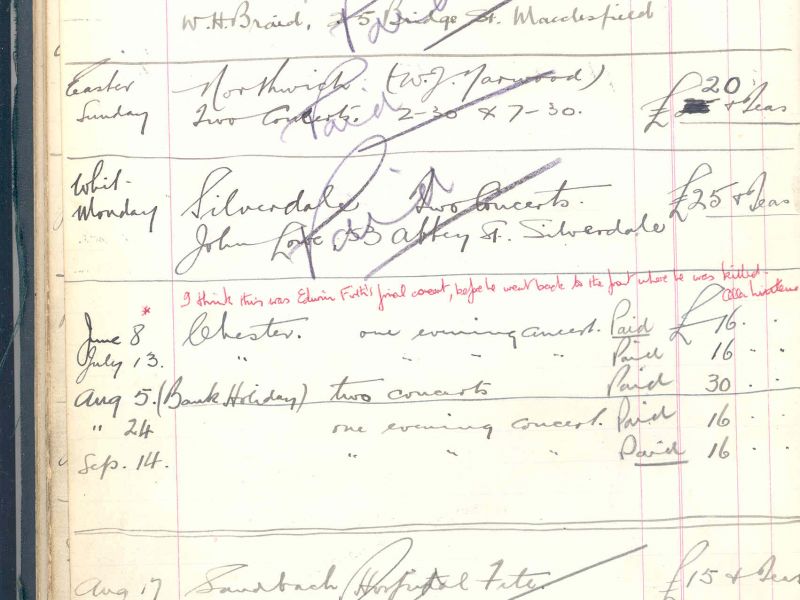 W.H. Braid, 25 Bridge St. Macclesfield
Paid
Easter Sunday Northwich. (W.J. Yarwood) £20 & Teas
Two Concerts. 2-30 & 7-30.
Paid
Whit-Monday Silverdale Two Concerts. £25 & Teas
John Lowe, 53 Abbey St. Silverdale
Paid
I think this was Edwin Firth's final concert, before he went back to the front where he was killed.
*
June 8 Chester. one evening concert. Paid £16 . .
July 13. " " " " Paid 16 " "
Aug 5. (Bank Holiday) two concerts Paid 30 . .
" 24 one evening concert. Paid 16 . .
Sep. 14. " " " Paid 16 . .
Aug 17 Sandbach Hospital Fete. £15 & Teas